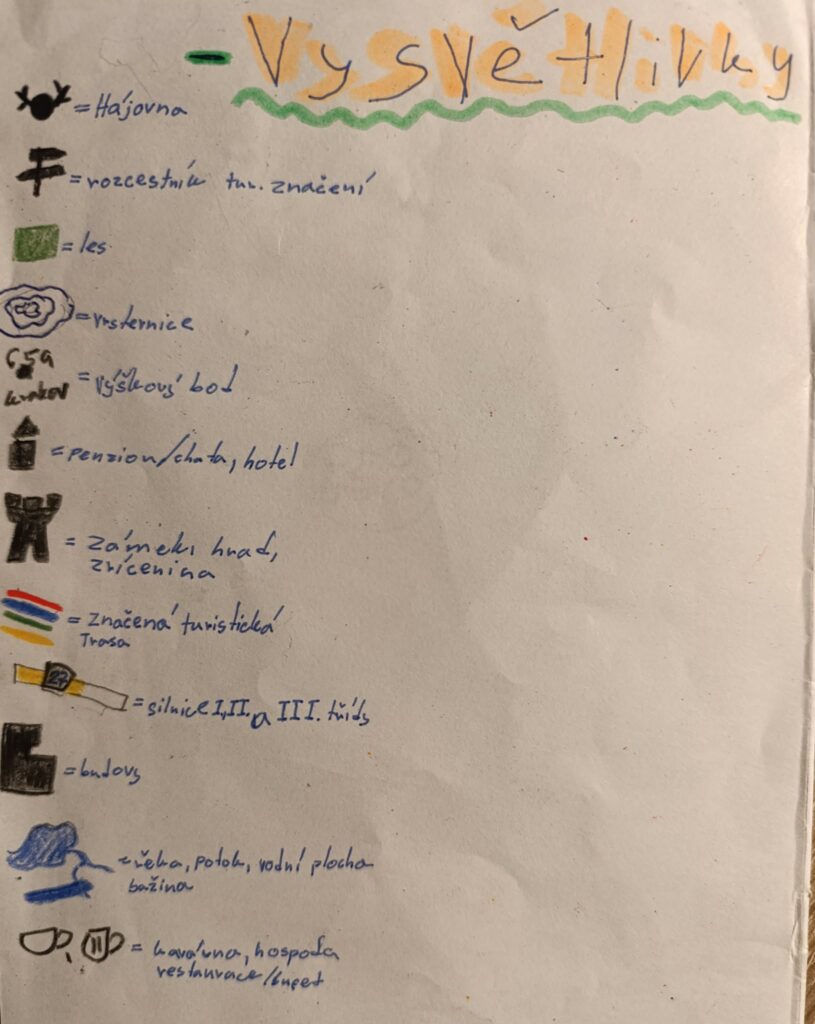 - Vysvětlivky
= Hájovna
= rozcestník tur. značení
= les
= vrsternice
659
= výškový bod
= penzion/chata, hotel
= zámek, hrad,
zřícenina
= značená turistická
Trasa
27
= silnice I, II. a III. třídy
= budovy
= řeka, potok, vodní plocha
bažina
= kavárna, hospoda
restaurace/bufet